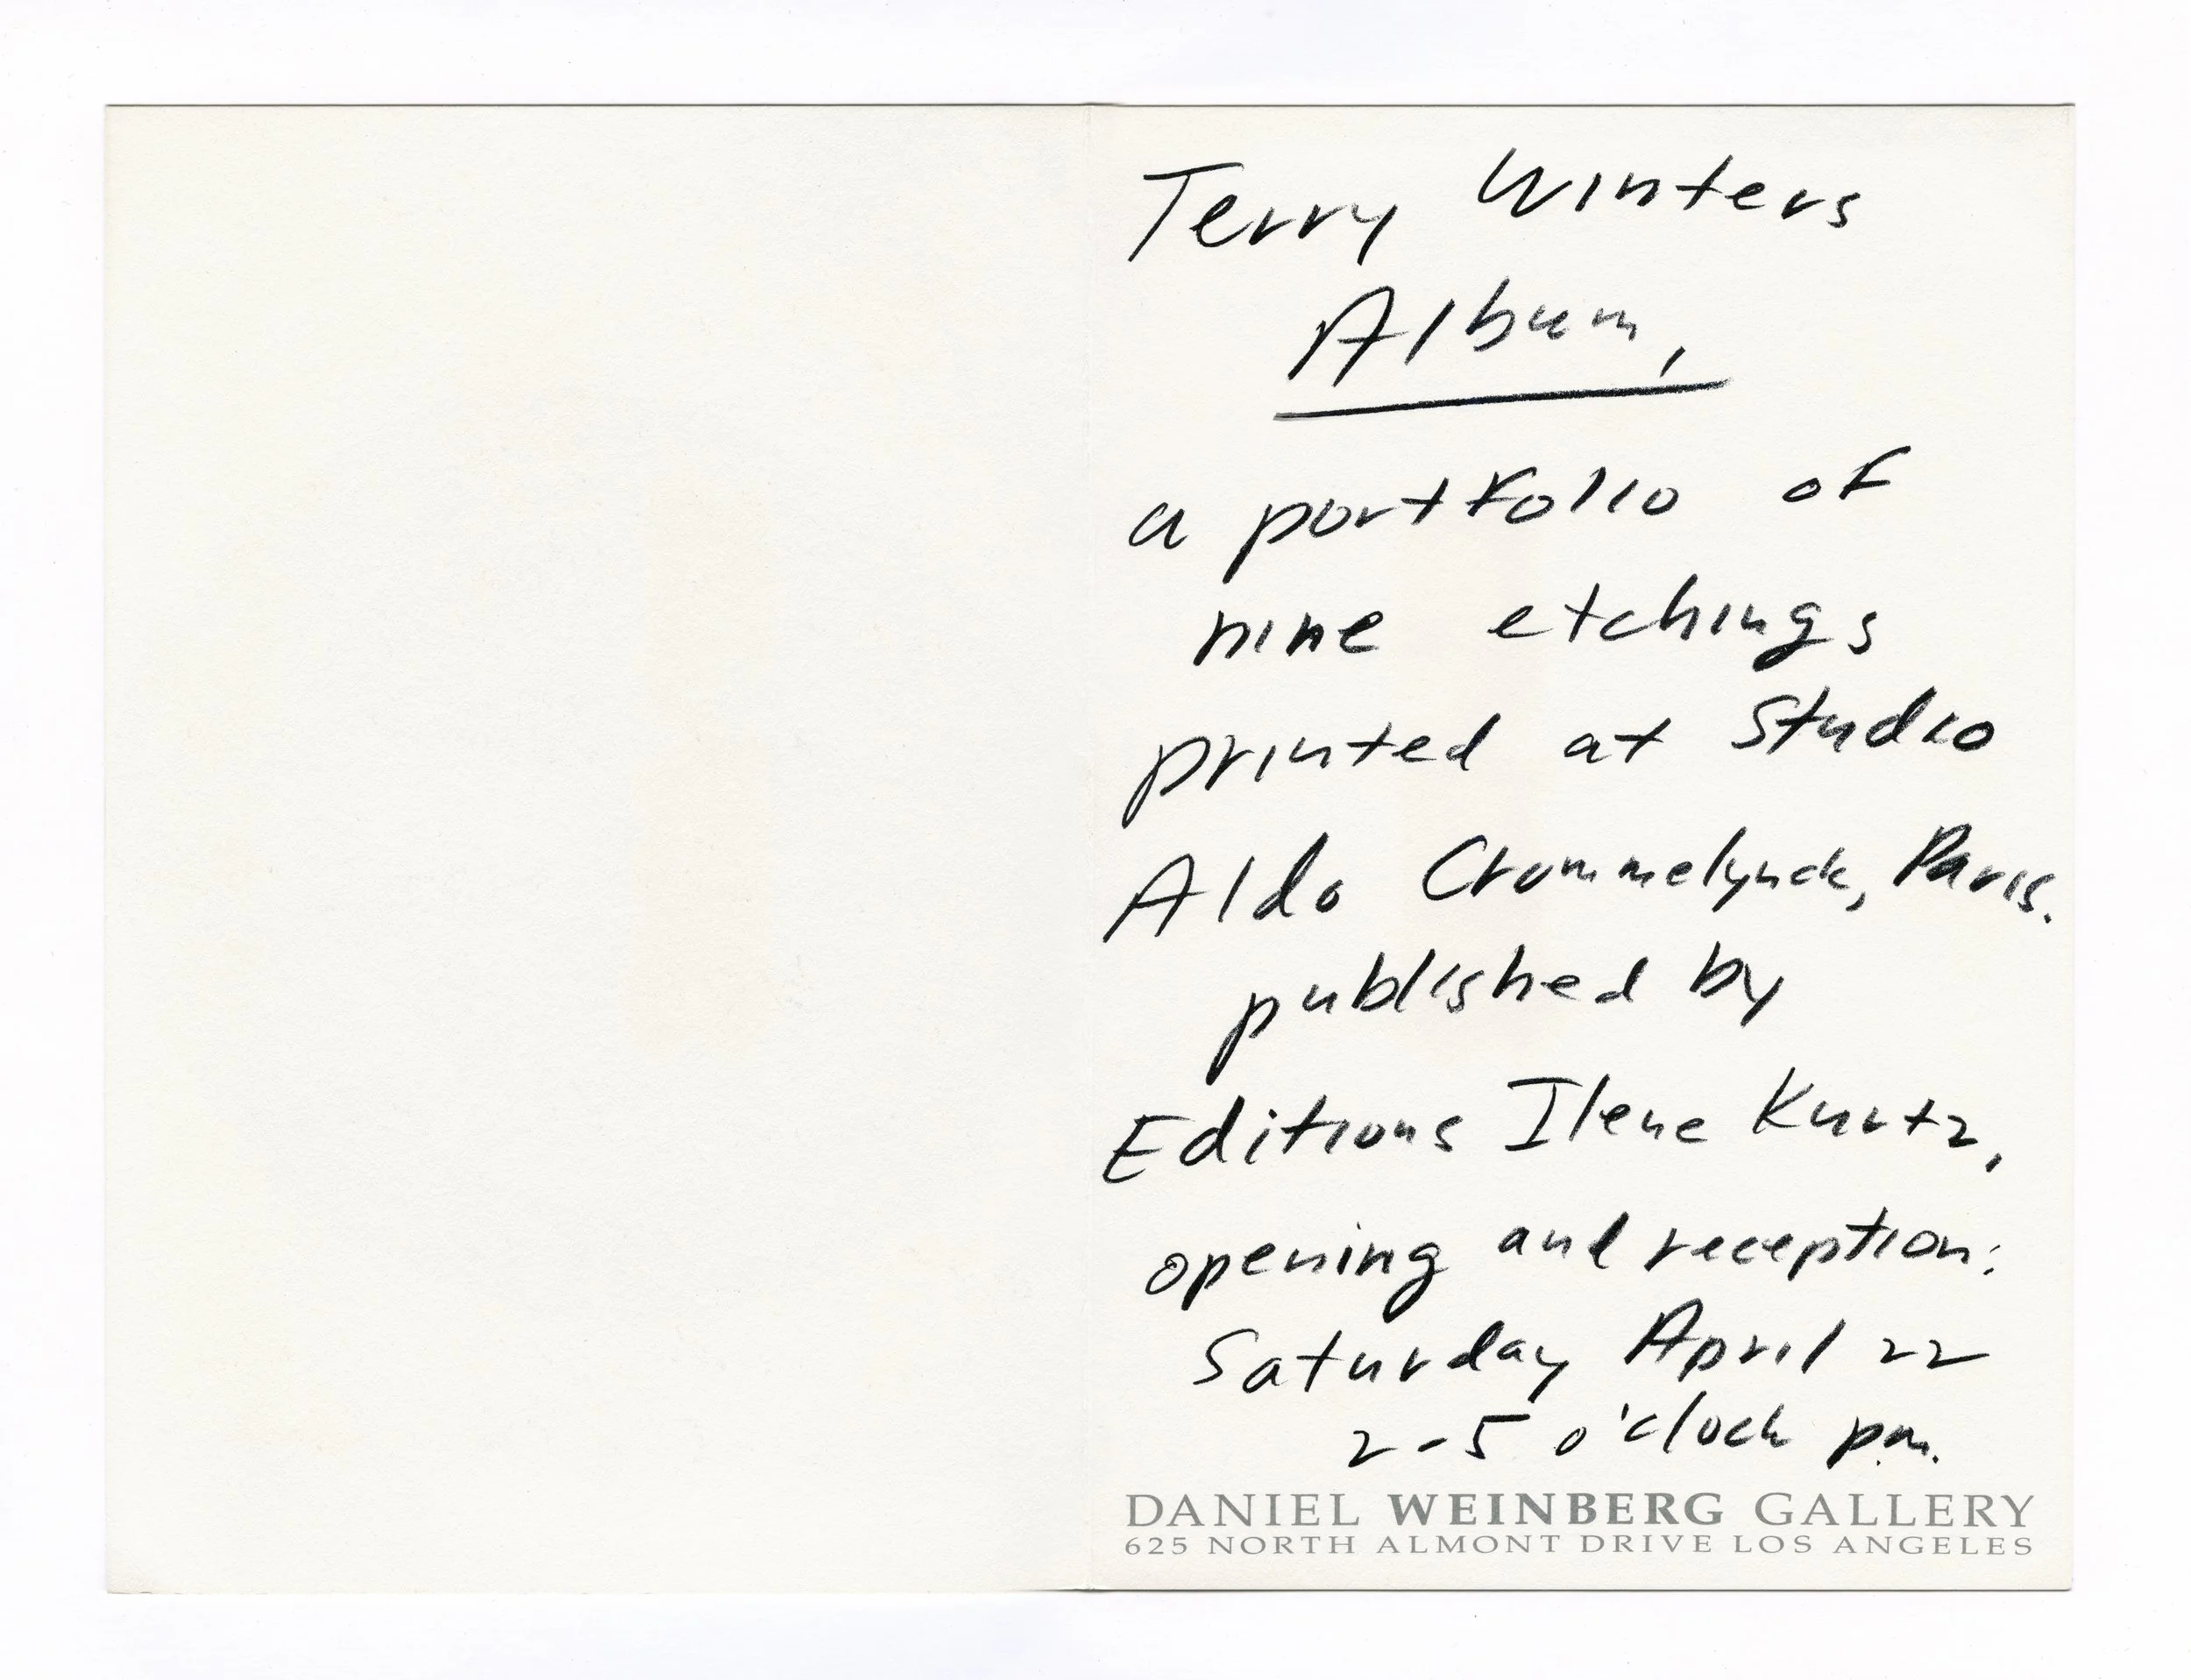 Terry Winters
Album,
a portfolio of
nine etchings
printed at Studio
Aldo Crommelynck, Paris.
published by
Editions Ilene Kurtz,
opening and reception:
Saturday April 22
2-5 o'clock p.m.
DANIEL WEINBERG GALLERY
625 NORTH ALMONT DRIVE LOS ANGELES